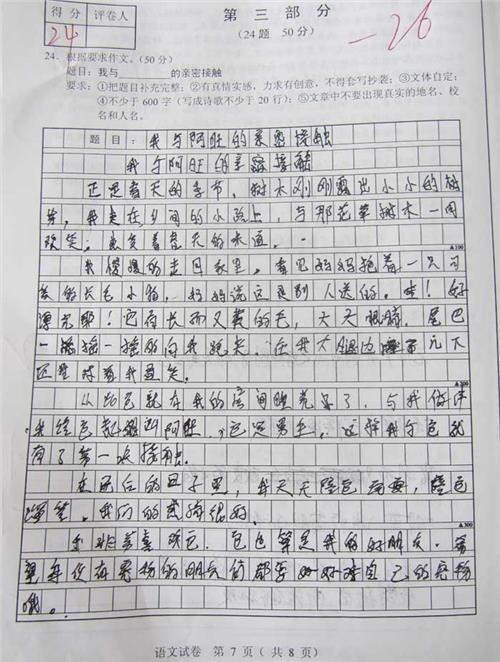 得分 评卷人
24
第三部分
(24题 50分)
-26
24. 根据要求作文。(50分)
题目:我与______的亲密接触
要求:①把题目补充完整;②有真情实感,力求有创意,不得套写抄袭;③文体自定;
④不少于 600 字(写成诗歌不少于 20 行);⑤文章中不要出现真实的地名、校
名和人名。
题目:我与阿旺的亲密接触
我与阿旺的亲密接触
正是春天的季节,树木刚刚露出小小的树
芽,我走在乡间的小路上,与那花草树木一同
欢笑。感受着春天的味道。
▲100
我慢慢的走回家里,看见妈妈抱着一只可
爱的长毛小狗,妈妈说这是别人送的。哇!好
漂亮耶!它有长而又黄的毛,大大眼睛,尾巴
一摇一摇的向我跑来,在我大腿边
还对着我直笑。
▲200
从此它就在我的房间
我给它起名叫阿旺,这样我与它就
有了第一次接触。
在以后的日子里,我天天陪它玩耍,陪它
我们的感情很好。
▲300
我非常喜欢它,它也算是我的好朋友。希
望养宠物的朋友们都要好好对自己的宠物
哦。
语文试卷 第 7 页(共 8 页)